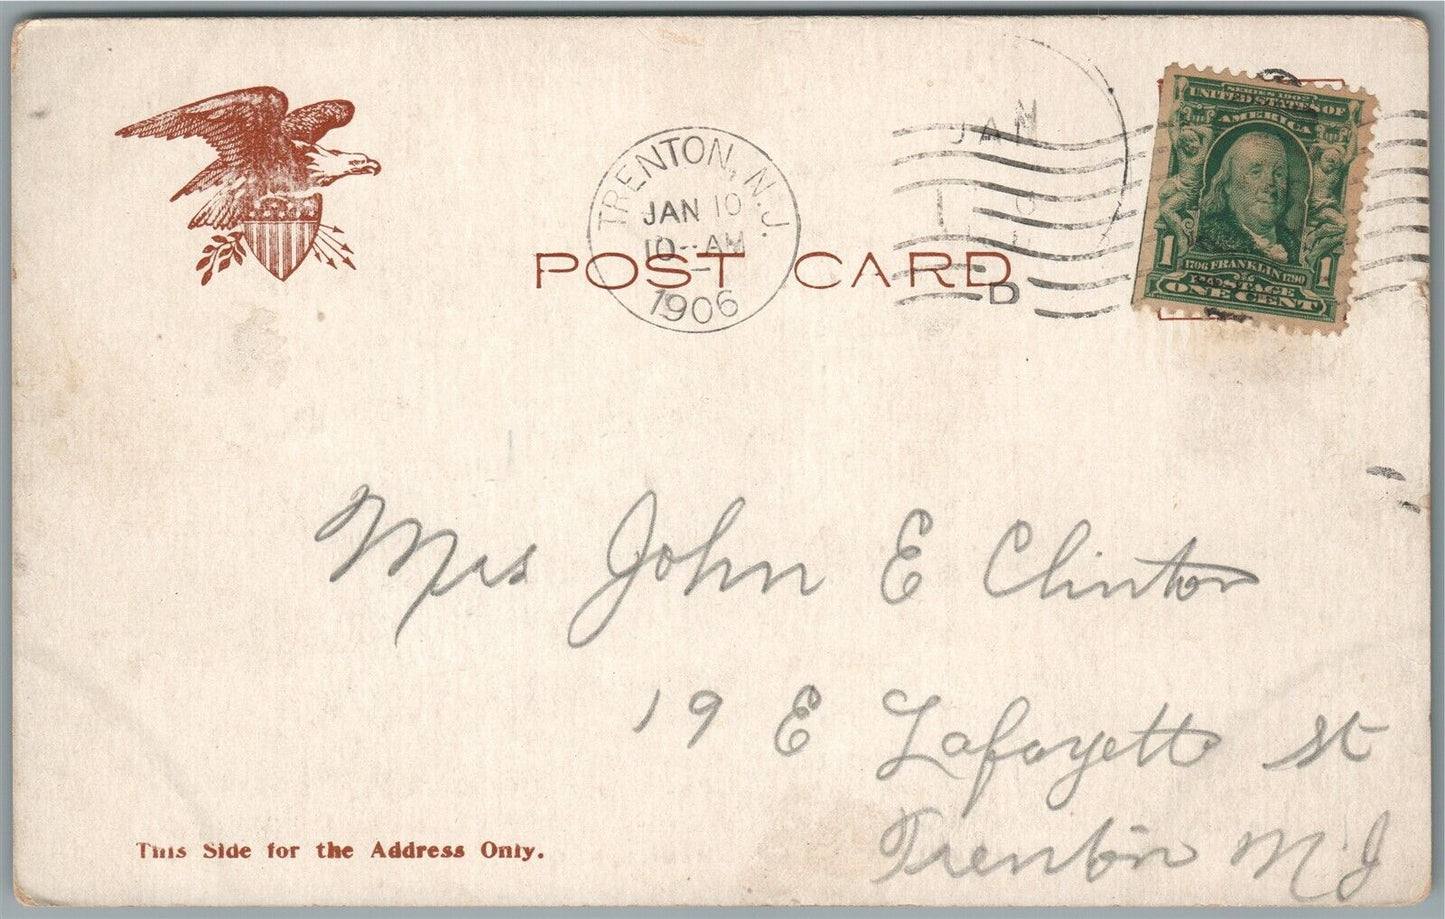 TRENTON, N.J.
JAN 10
10-AM
1906
JAN
D
SERIES 1902
UNITED STATES OF
AMERICA
1706 FRANKLIN 1790
1 POSTAGE 1
ONE CENT
POST CARD
Mrs John E Clinton
19 E Lafayette St
Trenton N J
This Side for the Address Only.